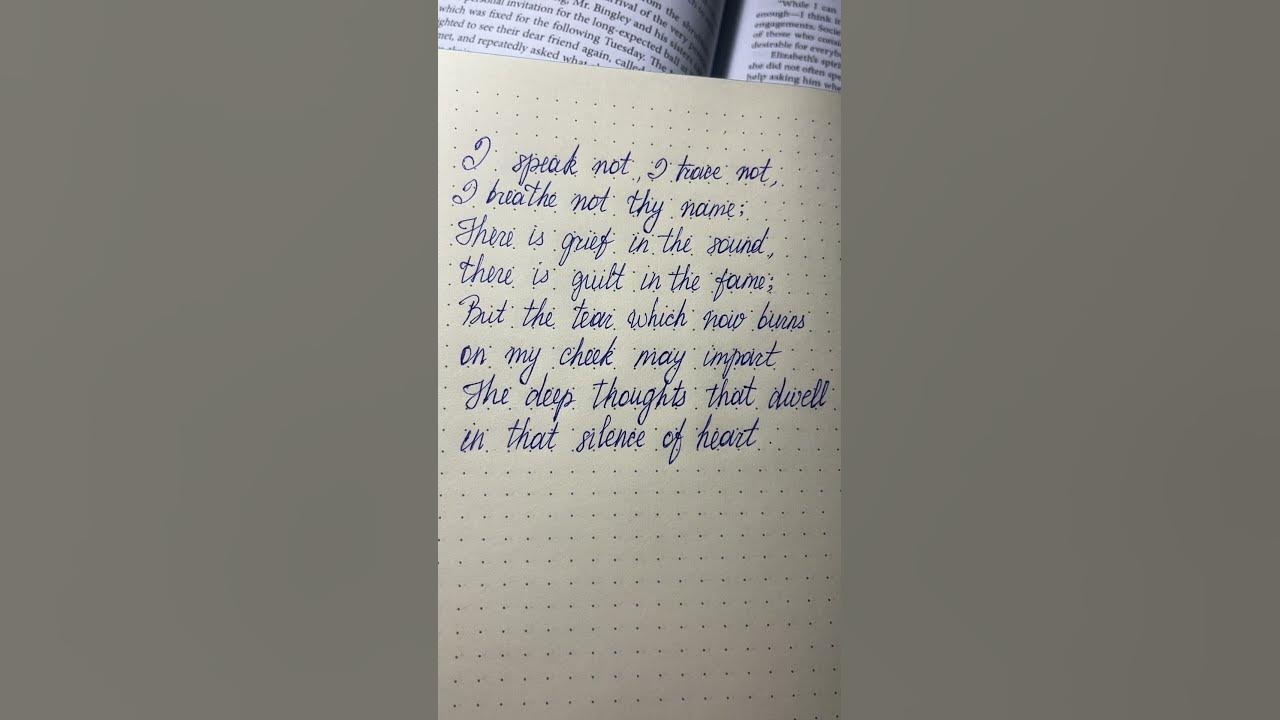 from the shrub
arrival of the very
Mr. Bingley and his sisters
personal invitation for the long-expected ball
which was fixed for the following Tuesday. The
ghted to see their dear friend again, called
met, and repeatedly asked what
"While I can
enough—I think it
engagements. Socie
of those who consi
desirable for everyb
Elizabeth's spiri
she did not often spe
help asking him whe
I speak not, I trace not,
I breathe not thy name;
There is grief in the sound,
there is guilt in the fame;
But the tear which now burns
on my cheek may impart
The deep thoughts that dwell
in that silence of heart.